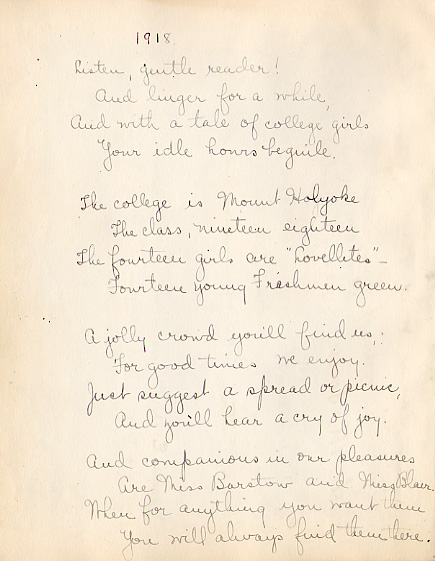 1918
Listen, gentle reader!
And linger for a while,
And with a tale of college girls
Your idle hours beguile.
The college is Mount Holyoke
The class, nineteen eighteen
The fourteen girls are "Lovellites"-
Fourteen young Freshmen green.
A jolly crowd you'll find us,:
For good times we enjoy.
Just suggest a spread or picnic,
And you'll hear a cry of joy.
And companions in our pleasures
Are Miss Barstow and Miss Blair.
When for anything you want them
You will always find them here.